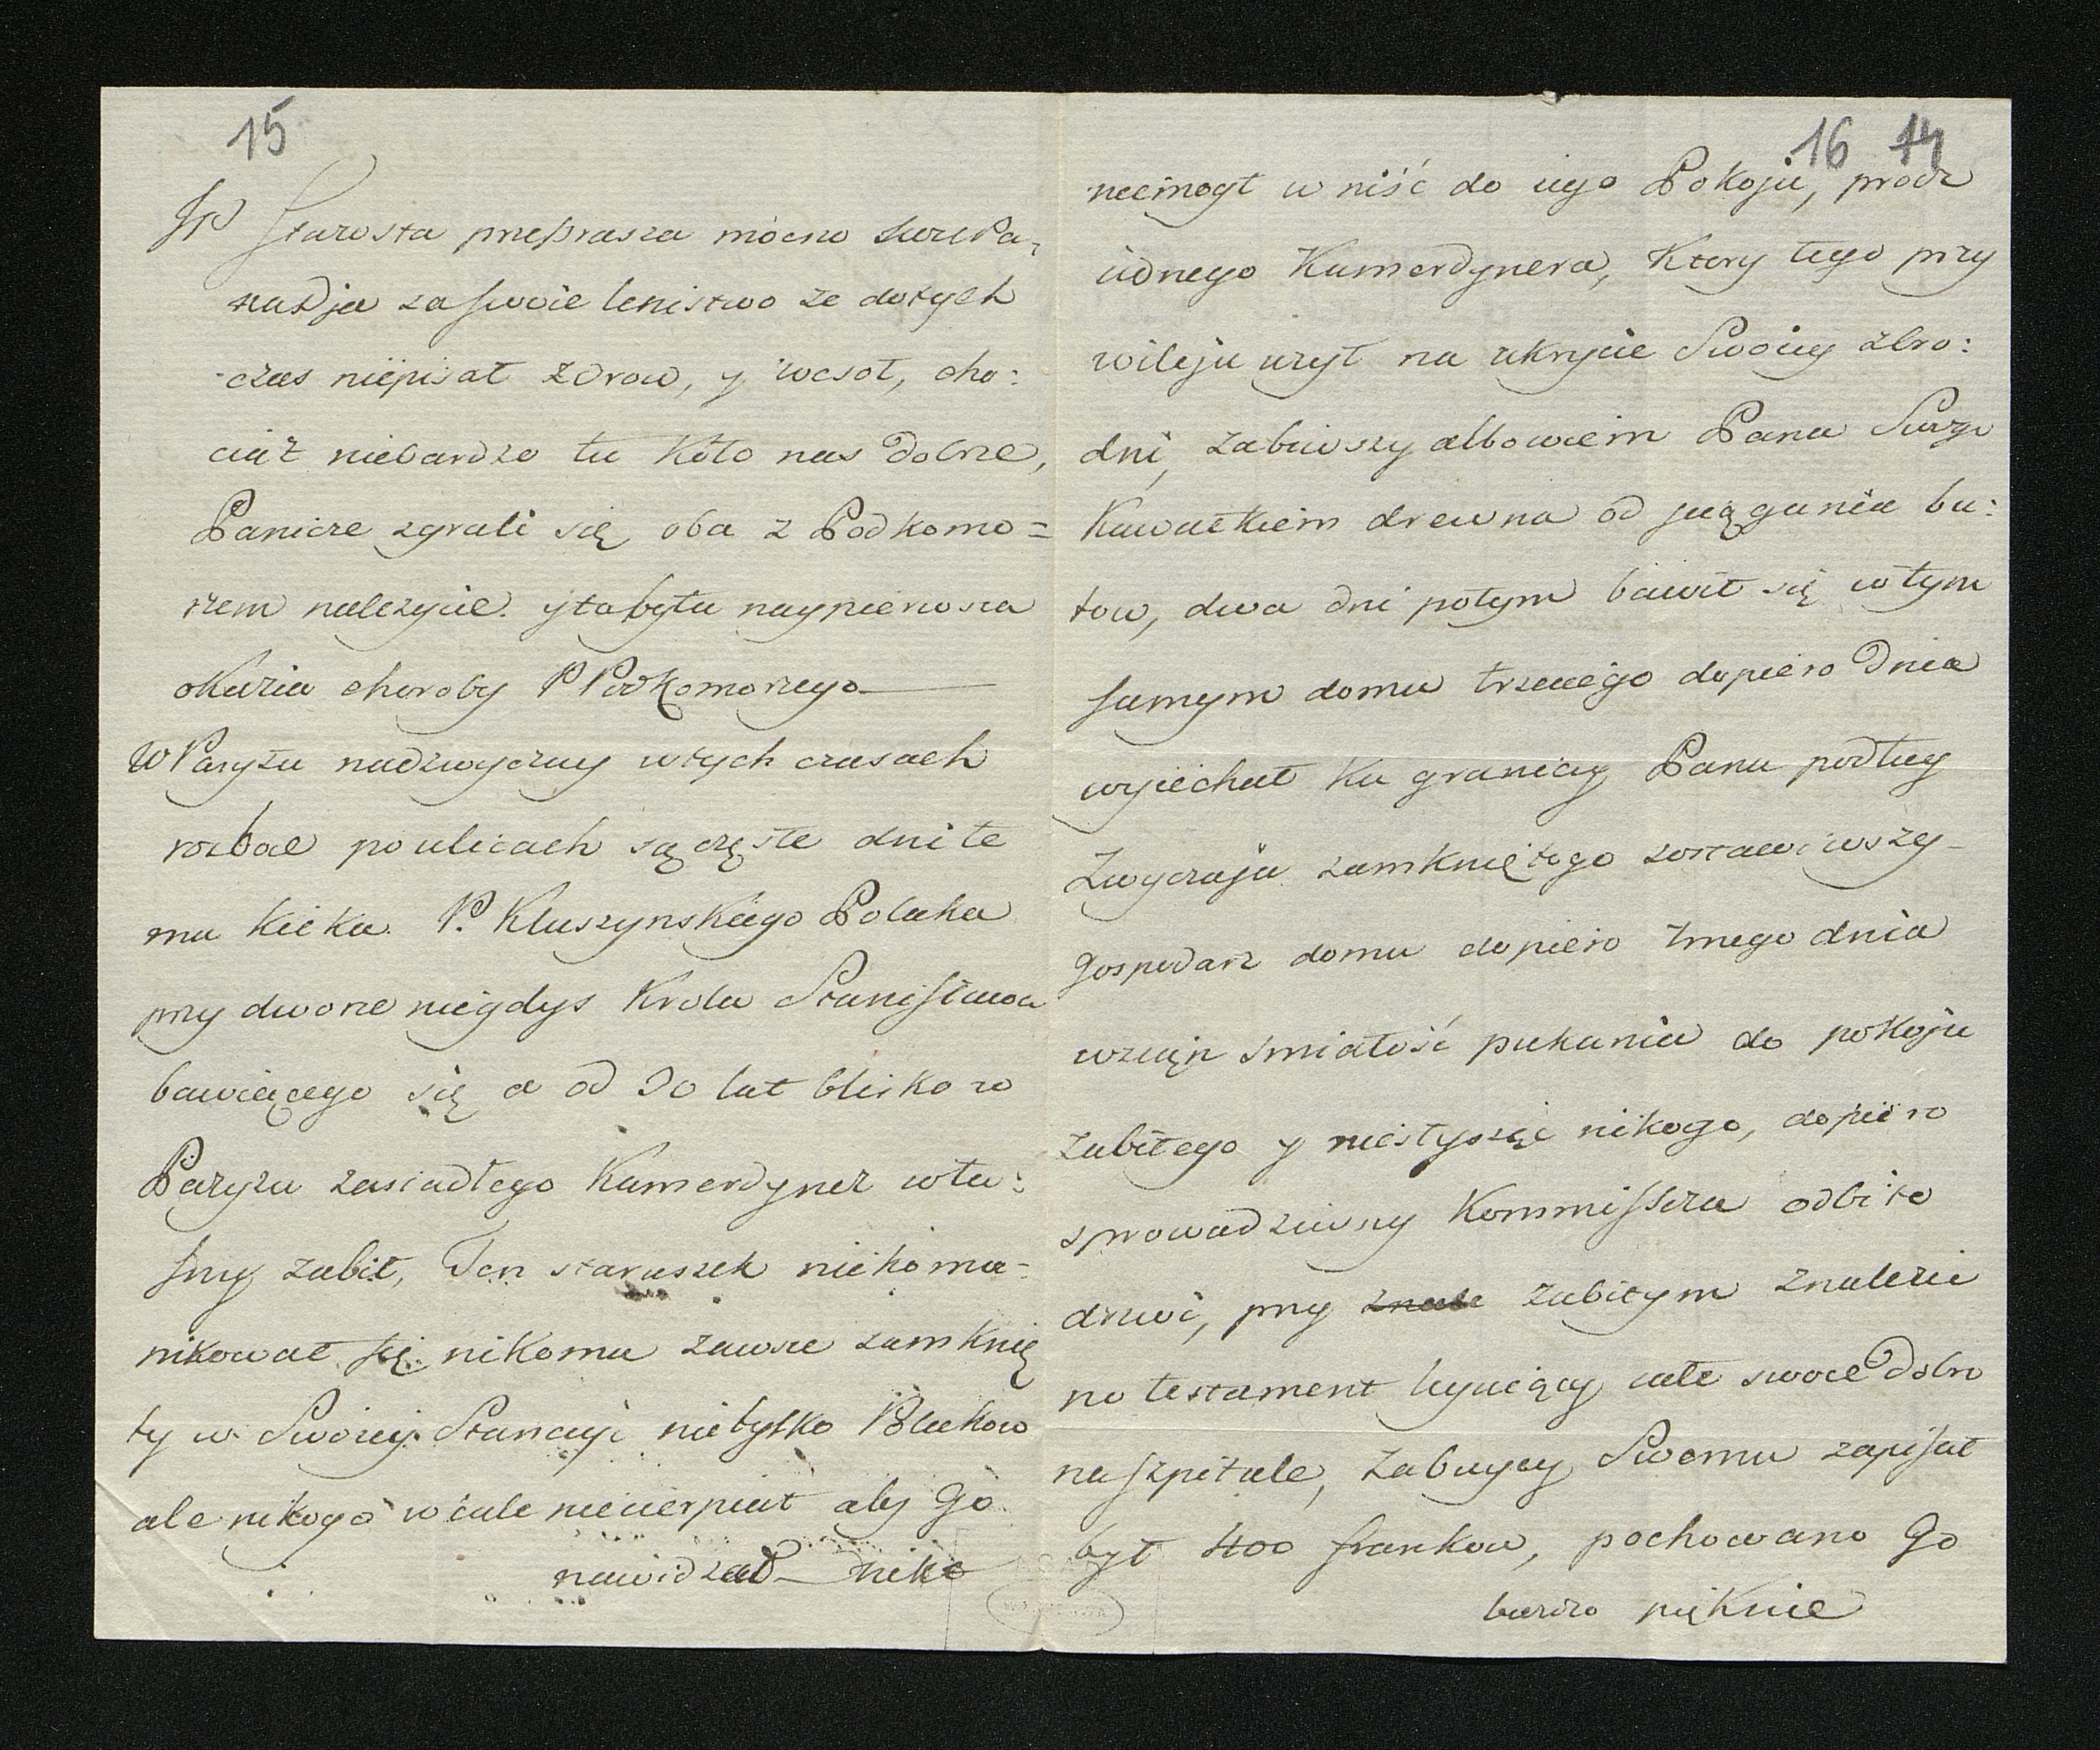 15
JP Starosta przeprasza mocno
za swoie lenistwo ze dotych
czas niepisał zdrow, y wesoł, cho:
ciaż niebardzo tu koło nas dobrze,
Panicze zgrali się oba z Podkomo=
rzem nalezycie. y ta była naypierwsza
okazia choroby P Podkomorzego
W Paryżu nadzwyczay w tych czasach
rozboie po ulicach są częste dni te
mu kilka. P. Kluszynskiego Polaka
przy dworze niegdys Krola Stanisława
bawiącego się a od 30 lat blisko w
Paryzu zasiadłego Kamerdyner wła:
sny zabił, Ten staruszek niekomu=
nikował się nikomu zawsze zamknię
ty w Swoiey Stancyi nietylko Polakow
ale nikogo wcale niecierpiał aby Go
nawidzał nikt
16 14
niemogł w niść do iego Pokoju, procz
iednego Kamerdynera, Ktory tego przy
wileju użył na ukrycie Swoiey zbro:
dni, zabiwszy albowiem Pana Swego
Kawałkiem drewna od sciągania bu:
tow, dwa dni potym bawił się w tym
samym domu trzeciego dopiero Dnia
wyiechał ku granicy Pana podług
Zwyczaju zamkniętego zostawiwszy
Gospodarz domu dopiero 7mego dnia
wziąn smiałość pukania do pokoju
Zabitego y niesłysząc nikogo, dopiero
sprowadziwszy Kommissarza odbito
drzwi, przy znale Zabitym Znalezio
no testament całe swoie Dobro
na szpitale, Zabuycy Swemu zapisał
był 400 frankow, pochowano Go
bardzo pięknie